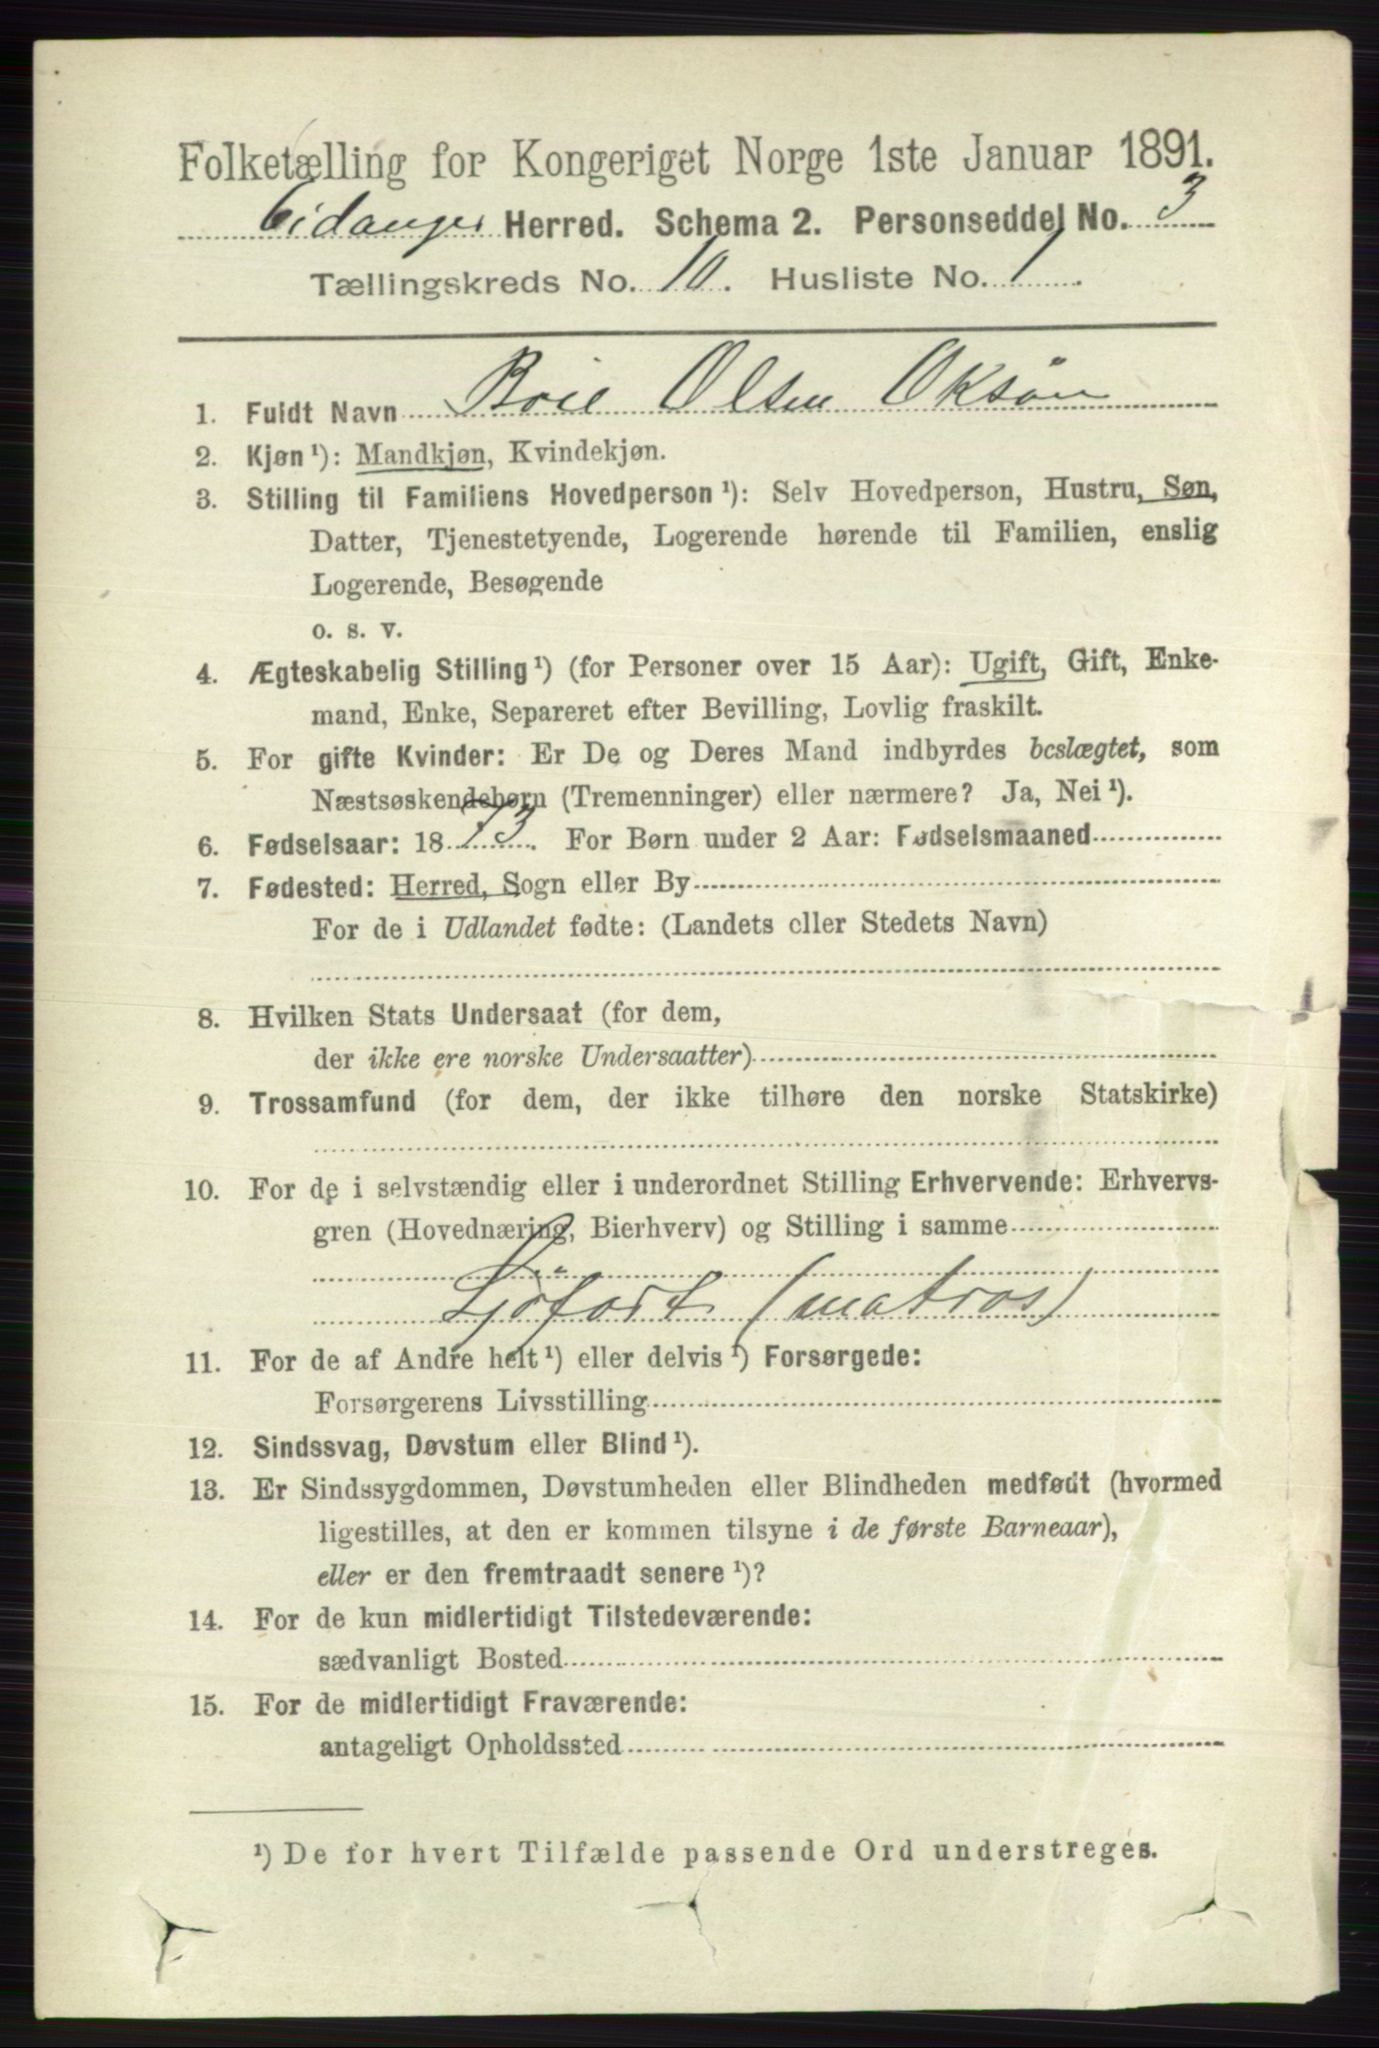 Folketælling for Kongeriget Norge 1ste Januar 1891.
Eidanger Herred. Schema 2. Personseddel No. 3
Tællingskreds No. 10. Husliste No. 1
1. Fuldt Navn Boie Olsen Oksøen
2. Kjøn ¹): Mandkjøn, Kvindekjøn.
3. Stilling til Familiens Hovedperson ¹): Selv Hovedperson, Hustru, Søn,
Datter, Tjenestetyende, Logerende hørende til Familien, enslig
Logerende, Besøgende
o. s. v.
4. Ægteskabelig Stilling ¹) (for Personer over 15 Aar): Ugift, Gift, Enke-
mand, Enke, Separeret efter Bevilling, Lovlig fraskilt.
5. For gifte Kvinder: Er De og Deres Mand indbyrdes beslægtet, som
Næstsøskendebørn (Tremenninger) eller nærmere? Ja, Nei ¹).
6. Fødselsaar: 1873. For Børn under 2 Aar: Fødselsmaaned
7. Fødested: Herred, Sogn eller By
For de i Udlandet fødte: (Landets eller Stedets Navn)
8. Hvilken Stats Undersaat (for dem,
der ikke ere norske Undersaatter)
9. Trossamfund (for dem, der ikke tilhøre den norske Statskirke)
10. For de i selvstændig eller i underordnet Stilling Erhvervende: Erhvervs-
gren (Hovednæring, Bierhverv) og Stilling i samme
Sjöfart (matros)
11. For de af Andre helt ¹) eller delvis ¹) Forsørgede:
Forsørgerens Livsstilling
12. Sindssvag, Døvstum eller Blind ¹).
13. Er Sindssygdommen, Døvstumheden eller Blindheden medfødt (hvormed
ligestilles, at den er kommen tilsyne i de første Barneaar),
eller er den fremtraadt senere ¹)?
14. For de kun midlertidigt Tilstedeværende:
sædvanligt Bosted
15. For de midlertidigt Fraværende:
antageligt Opholdssted
¹) De for hvert Tilfælde passende Ord understreges.